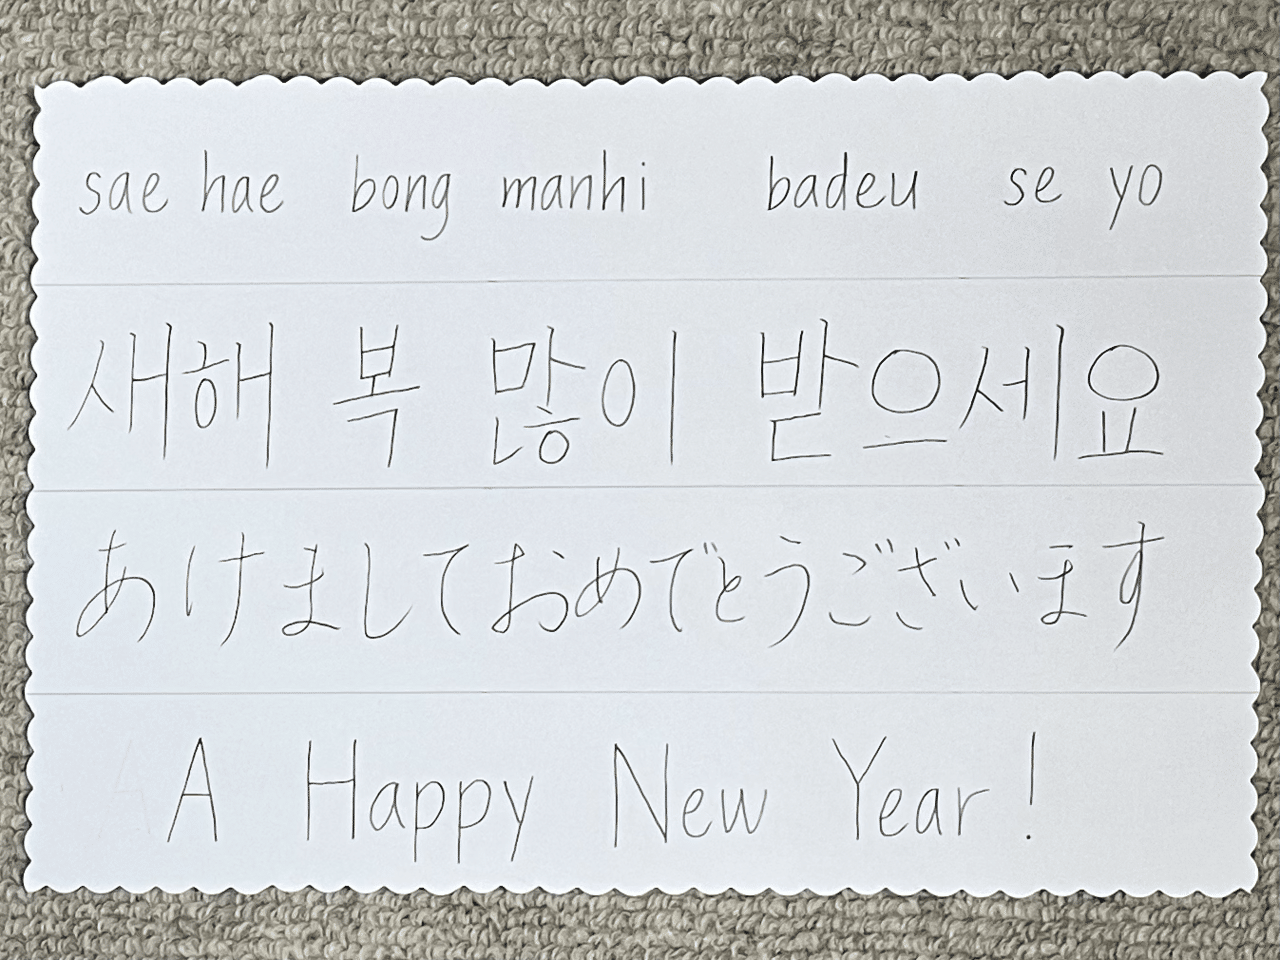 sae hae bong manhi badeu se yo
새해 복 많이 받으세요
あけましておめでとうございます
A Happy New Year!